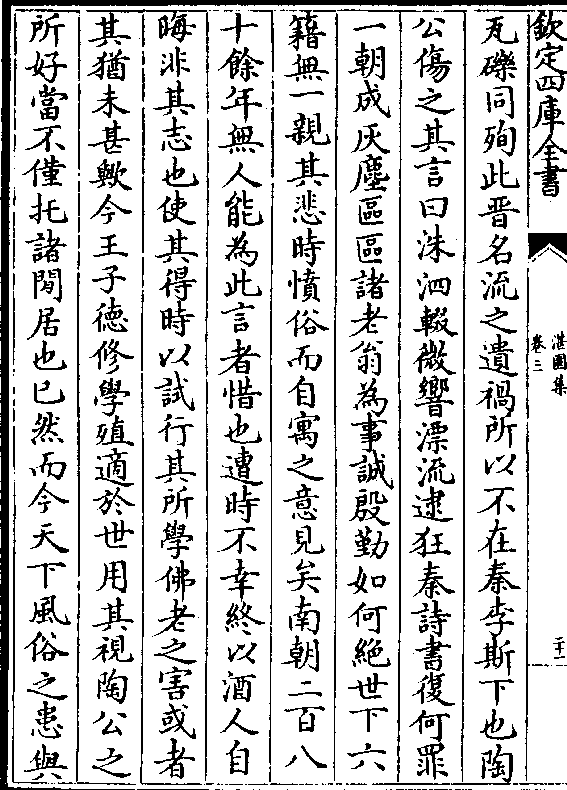 欽定四庫全書
湛園集
卷三
二十一
瓦礫同殉此晋名流之遺禍所以不在秦李斯下也陶
公傷之其言曰洙泗輟微響漂流逮狂秦詩書復何罪
一朝成灰塵區區諸老翁為事誠殷勤如何絶世下六
籍無一親其悲時憤俗而自寓之意見矣南朝二百八
十餘年無人能為此言者惜也遭時不幸終以酒人自
晦非其志也使其得時以試行其所學佛老之害或者
其猶未甚歟今王子徳修學殖適於世用其視陶公之
所好當不僅托諸閒居也已然而今天下風俗之患與